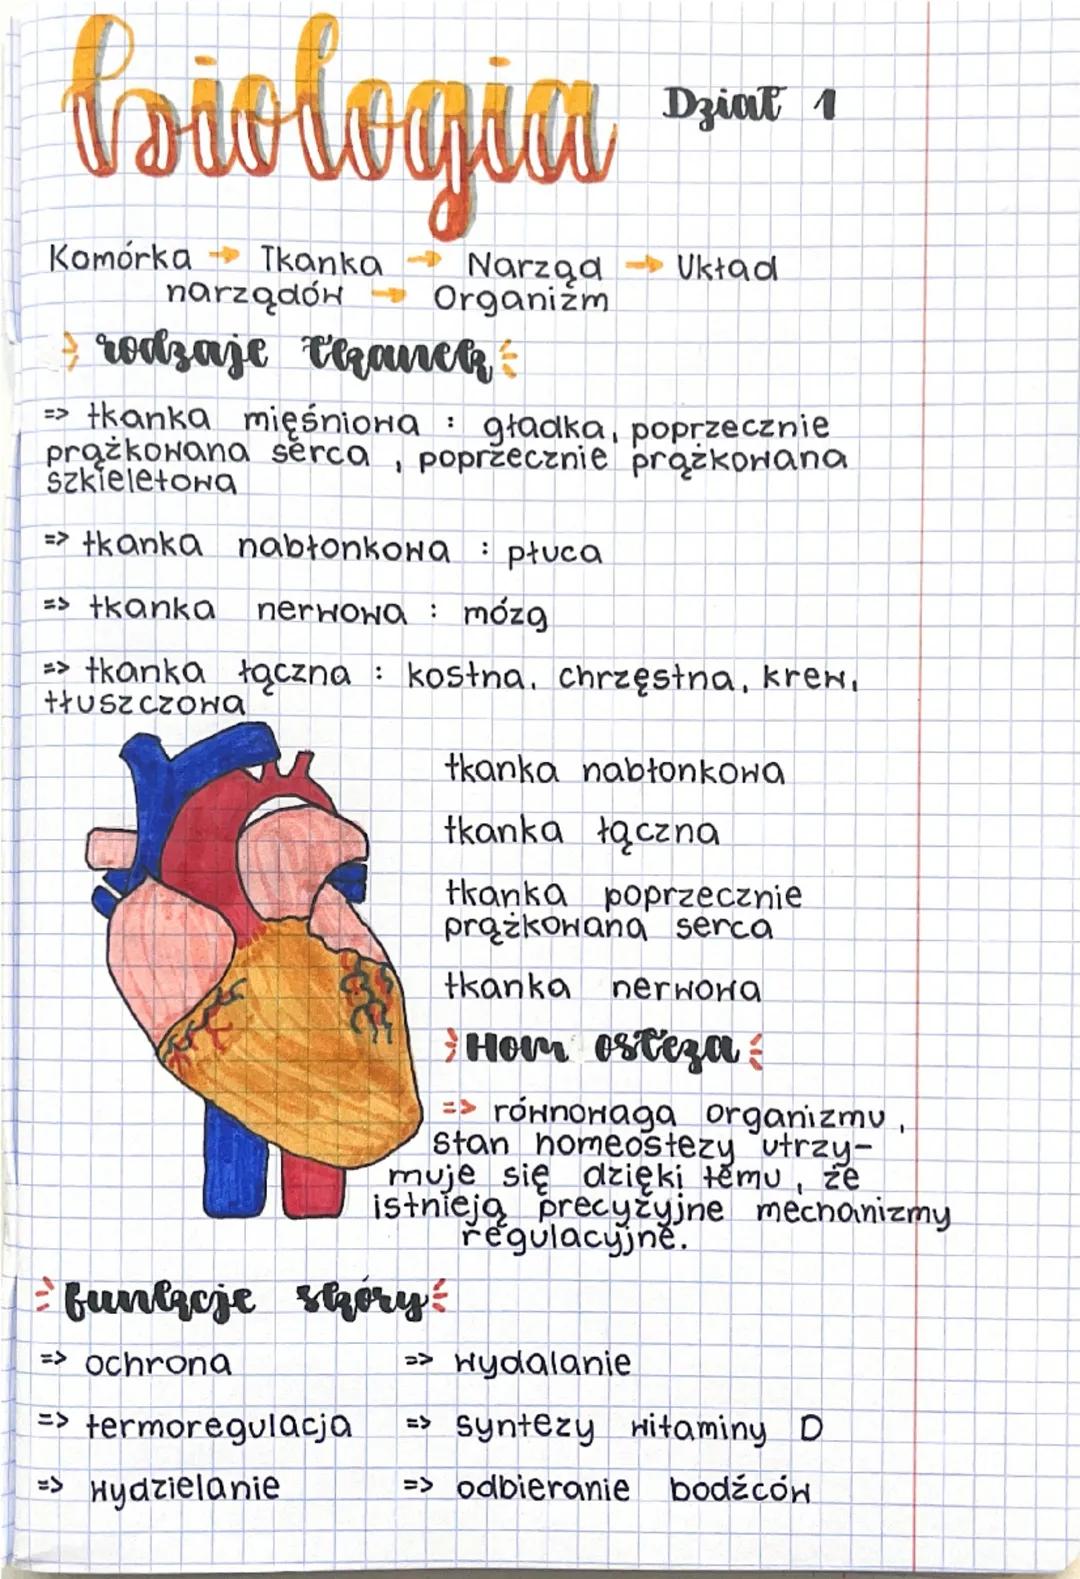 biologia Dział 1
Komórka → Tkanka → Narząd → Układ
narządów → Organizm
rodzaje tkanek
=> tkanka mięśniowa : gładka, poprzecznie
prążkowana serca , poprzecznie prążkowana
szkieletowa
=> tkanka nabłonkowa : płuca
=> tkanka nerwowa : mózg
=> tkanka łączna : kostna, chrzęstna, krew,
tłuszczowa
tkanka nabłonkowa
tkanka łączna
tkanka poprzecznie
prążkowana serca
tkanka nerwowa
Hom osteza
=> równowaga organizmu,
stan homeostezy utrzy-
muje się dzięki temu, że
istnieją precyzyjne mechanizmy
regulacyjne.
funkcje skóry
=> ochrona => wydalanie
=> termoregulacja => syntezy witaminy D
=> wydzielanie => odbieranie bodźców